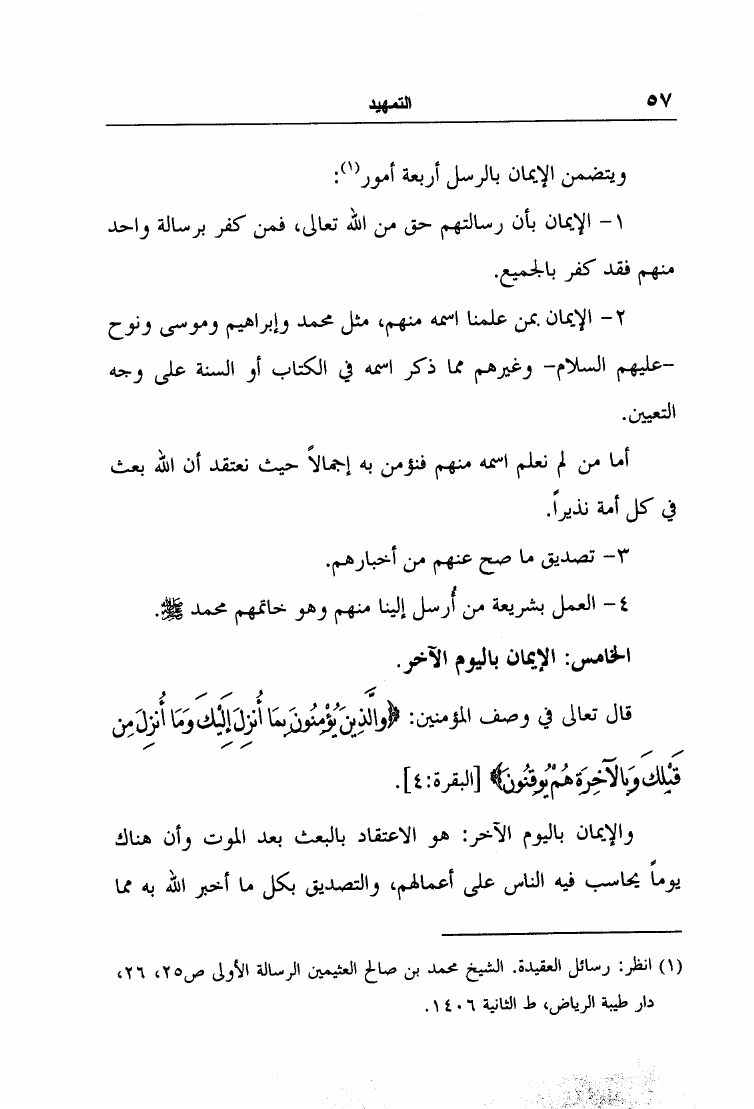 ٥٧ التمهيد
ويتضمن الإيمان بالرسل أربعة أمور(١):
١- الإيمان بأن رسالتهم حق من الله تعالى، فمن كفر برسالة واحد
منهم فقد كفر بالجميع.
٢- الإيمان بمن علمنا اسمه منهم، مثل محمد وإبراهيم وموسى ونوح
-عليهم السلام- وغيرهم مما ذكر اسمه في الكتاب أو السنة على وجه
التعيين.
أما من لم نعلم اسمه منهم فنؤمن به إجمالاً حيث نعتقد أن الله بعث
في كل أمة نذيراً.
٣- تصديق ما صح عنهم من أخبارهم.
٤- العمل بشريعة من أُرسل إلينا منهم وهو خاتمهم محمد ﷺ.
الخامس: الإيمان باليوم الآخر.
قال تعالى في وصف المؤمنين: ﴿والَّذِينَ يُؤْمِنُونَ بِمَا أُنزِلَ إِلَيْكَ وَمَا أُنزِلَ مِن
قَبْلِكَ وَبِالْآخِرَةِ هُمْ يُوقِنُونَ﴾ [البقرة:٤].
والإيمان باليوم الآخر: هو الاعتقاد بالبعث بعد الموت وأن هناك
يوماً يحاسب فيه الناس على أعمالهم، والتصديق بكل ما أخبر الله به مما
(١) انظر: رسائل العقيدة. الشيخ محمد بن صالح العثيمين الرسالة الأولى ص٢٥، ٢٦،
دار طيبة الرياض، ط الثانية ١٤٠٦.